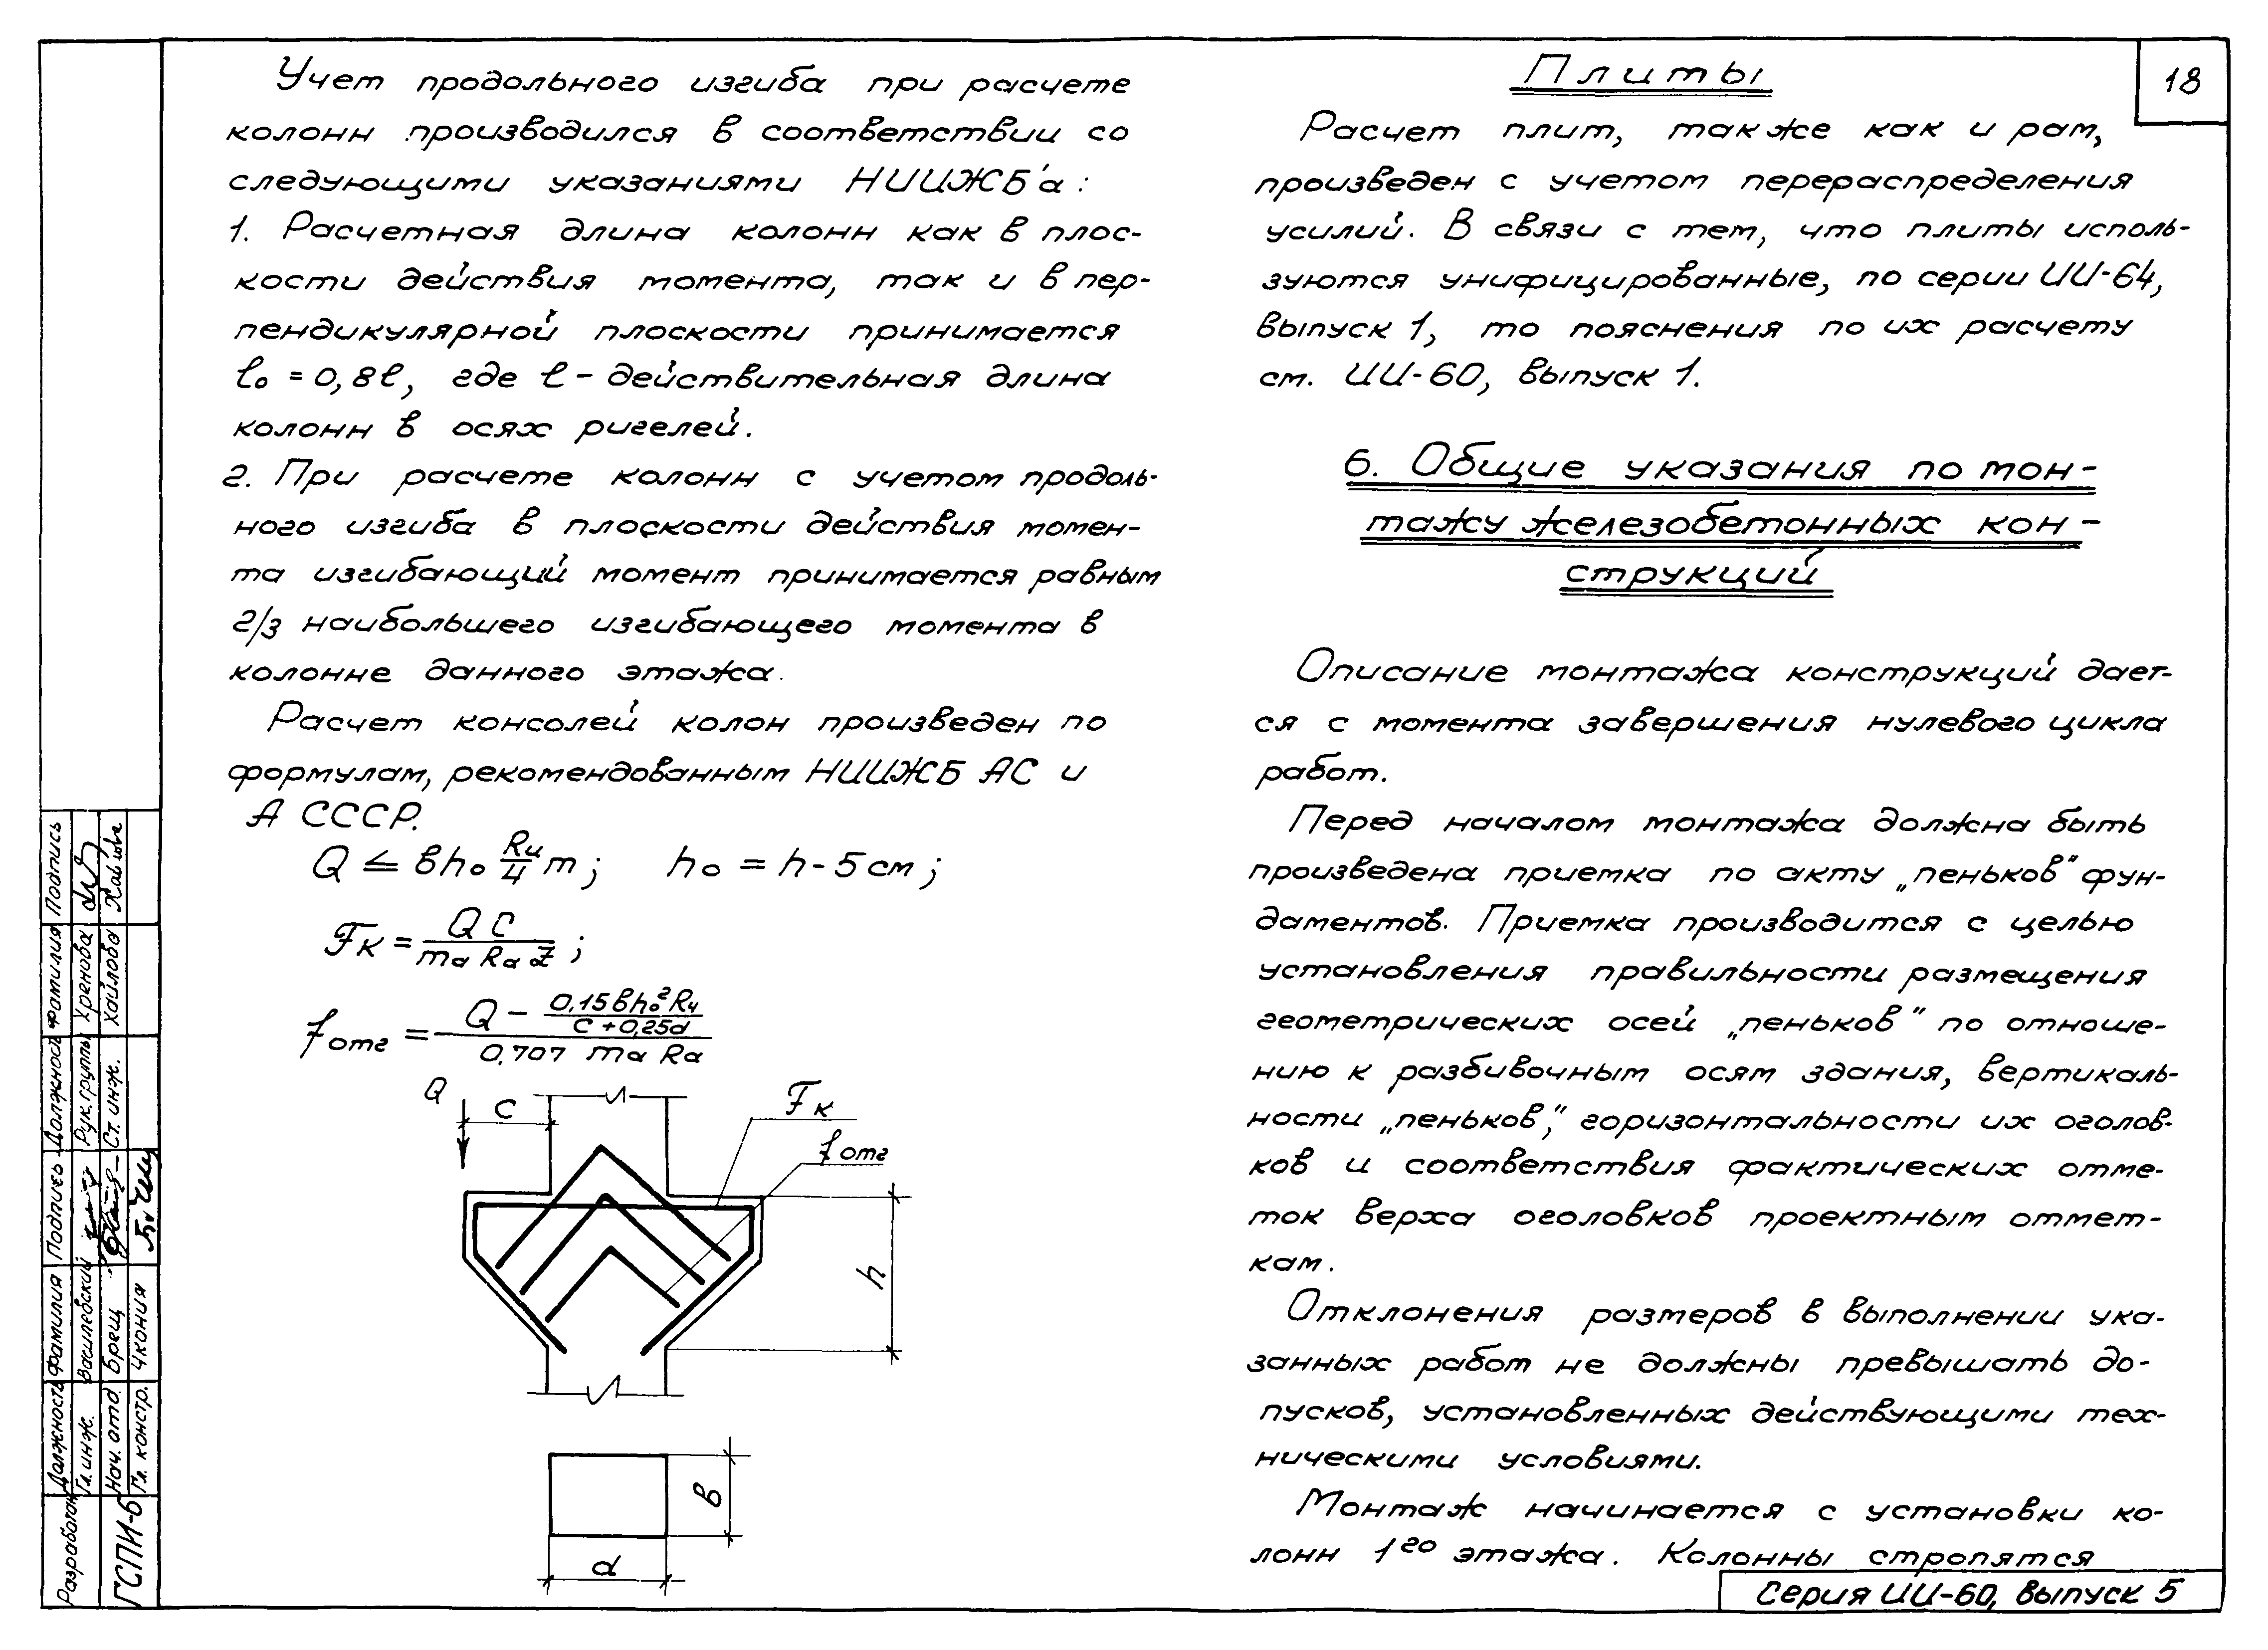 Учет продольного изгиба при расчете
колонн производился в соответствии со
следующими указаниями НИИЖБ'а:
1. Расчетная длина колонн как в плос-
кости действия момента, так и в пер-
пендикулярной плоскости принимается
ℓ₀ = 0,8ℓ, где ℓ - действительная длина
колонн в осях ригелей.
2. При расчете колонн с учетом продоль-
ного изгиба в плоскости действия момен-
та изгибающий момент принимается равным
2/3 наибольшего изгибающего момента в
колонне данного этажа.
Расчет консолей колон произведен по
формулам, рекомендованным НИИЖБ АС и
А СССР.
Q ≤ вh₀ Rи/4 m; h₀ = h - 5 см;
Fк = Q C / mа Rа Z ;
fотг = (Q - 0,15 вh₀² Rи / (C + 0,25d)) / 0,707 mа Rа
Q
C
Fк
fотг
h
в
d
Плиты
Расчет плит, также как и рам,
произведен с учетом перераспределения
усилий. В связи с тем, что плиты исполь-
зуются унифицированные, по серии ИИ-64,
выпуск 1, то пояснения по их расчету
см. ИИ-60, выпуск 1.
6. Общие указания по мон-
тажу железобетонных кон-
струкций
Описание монтажа конструкций дает-
ся с момента завершения нулевого цикла
работ.
Перед началом монтажа должна быть
произведена приемка по акту „пеньков" фун-
даментов. Приемка производится с целью
установления правильности размещения
геометрических осей „пеньков" по отноше-
нию к разбивочным осям здания, вертикаль-
ности „пеньков," горизонтальности их оголов-
ков и соответствия фактических отме-
ток верха оголовков проектным отмет-
кам.
Отклонения размеров в выполнении ука-
занных работ не должны превышать до-
пусков, установленных действующими тех-
ническими условиями.
Монтаж начинается с установки ко-
лонн 1го этажа. Колонны стропятся
18
Серия ИИ-60, выпуск 5
Разработан
ГСПИ-6
Должность Фамилия Подпись Должность Фамилия Подпись
Гл. инж. Василевский Рук. группы Хренова
Нач. отд. Брещ Ст. инж. Хайлова
Гл. констр. Чкония